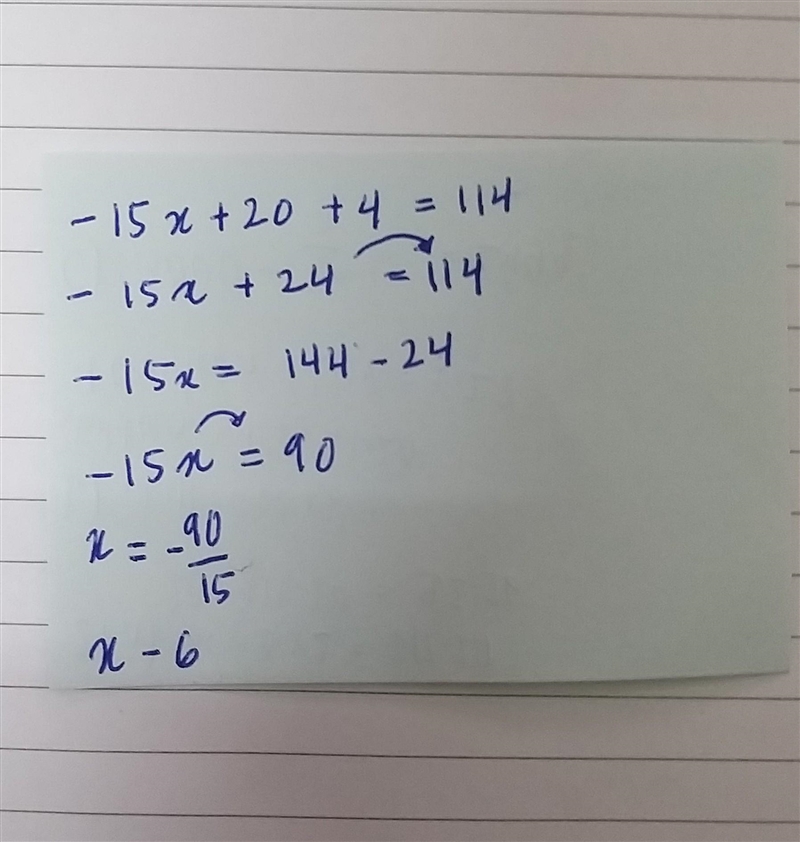 -15x+20 +4 = 114
-15x + 24 = 114
-15x = 144 - 24
-15x = 90
x = -90/15
x - 6